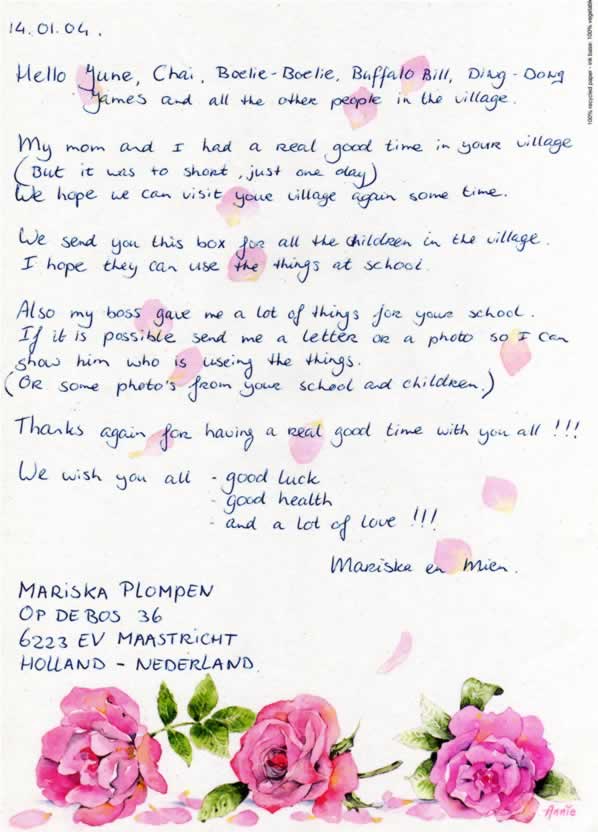 14.01.04.
100% recycled paper - ink base: 100% vegetable
Hello June, Chai, Boelie-Boelie, Buffalo Bill, Ding-Dong
James and all the other people in the village.
My mom and I had a real good time in your village
(But it was to short, just one day)
We hope we can visit your village again some time.
We send you this box for all the children in the village.
I hope they can use the things at school.
Also my boss gave me a lot of things for your school.
If it is possible send me a letter or a photo so I can
show him who is useing the things.
(Or some photo's from your school and children.)
Thanks again for having a real good time with you all !!!
We wish you all - good luck
- good health
- and a lot of love !!!
Mariska en Mien.
MARISKA PLOMPEN
OP DE BOS 36
6223 EV MAASTRICHT
HOLLAND - NEDERLAND.
Annie